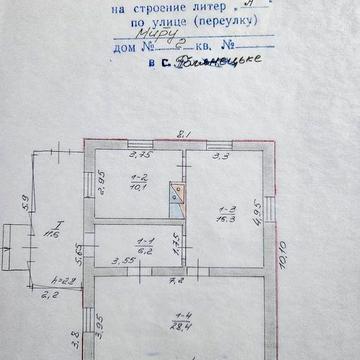 на строение литер „А"
по улице (переулку)
Миру
дом № 2 кв. №
в с.
8,1
3,75
3,3
2,95
1-2
10,1
1-3
16,3
4,95
5,9
I
11,6
5,65
1-1
6,2
1,75
10,10
3,55
7,2
h=2,2
2,2
3,8
3,95
1-4
28,4